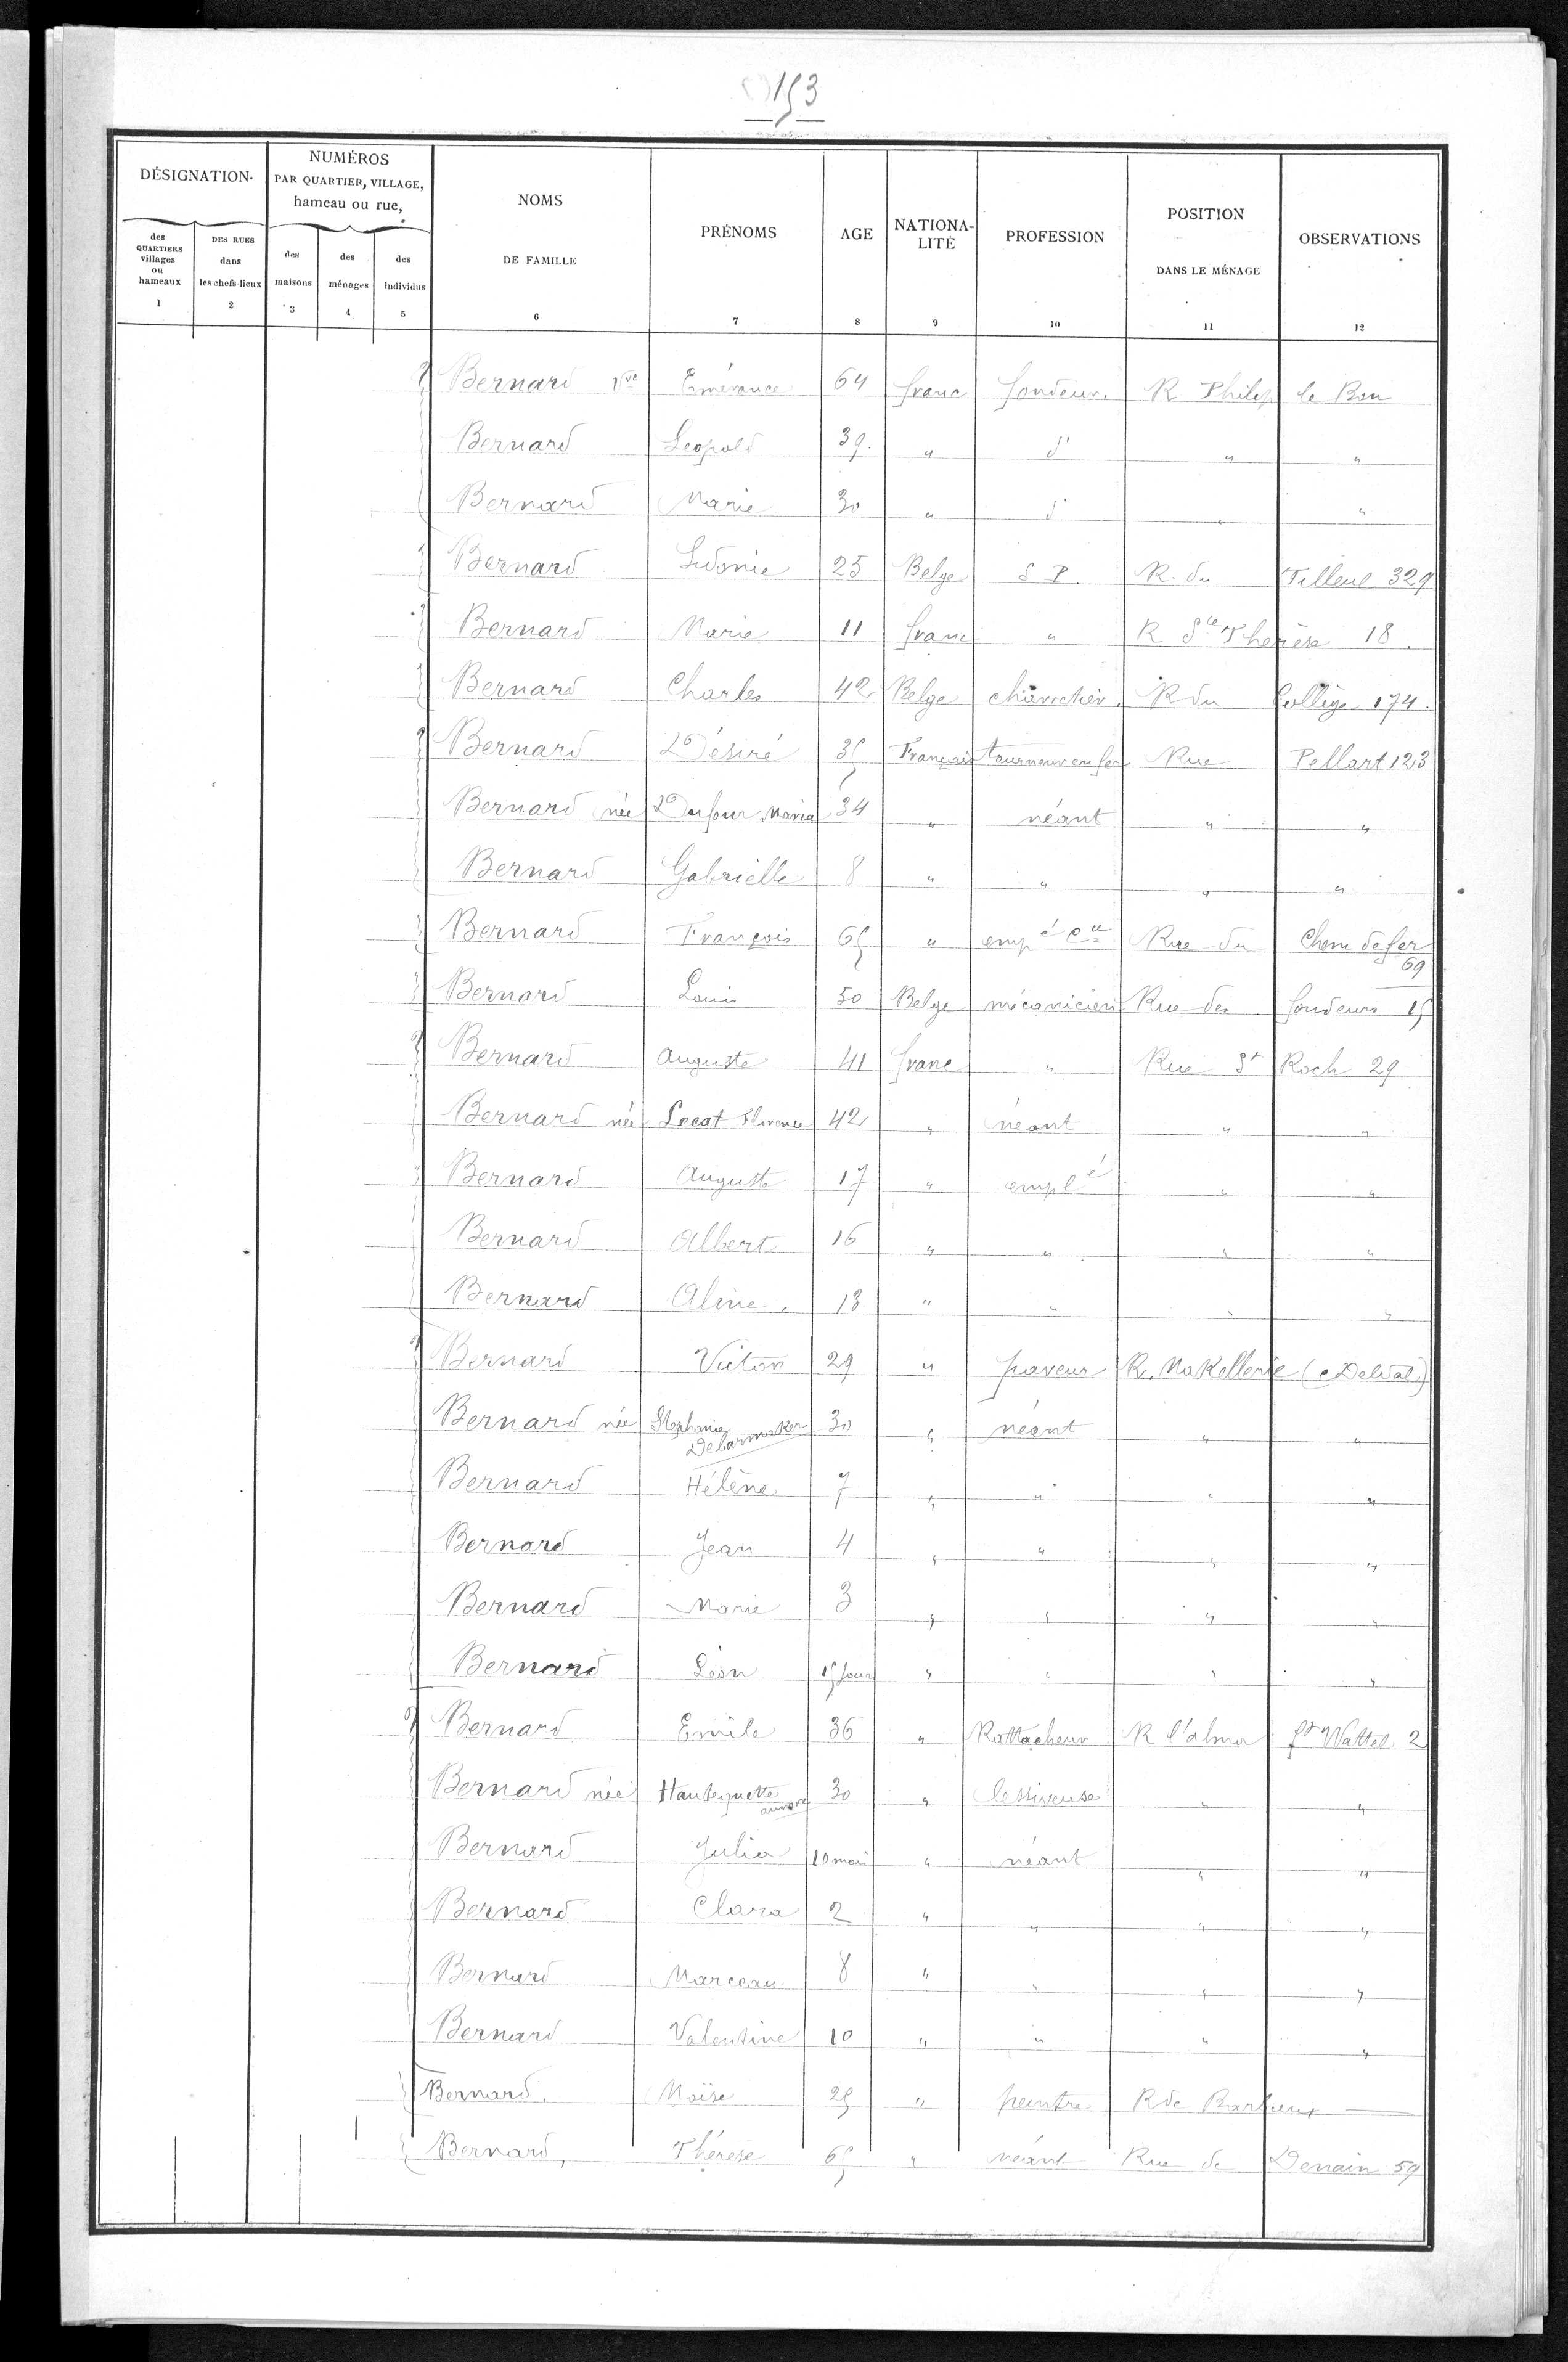 153
DÉSIGNATION
NUMÉROS PAR QUARTIER, VILLAGE, hameau ou rue,
NOMS DE FAMILLE
PRÉNOMS
AGE
NATIONA-LITÉ
PROFESSION
POSITION DANS LE MÉNAGE
OBSERVATIONS
des QUARTIERS villages ou hameaux
DES RUES dans les chefs-lieux
des maisons
des ménages
des individus
1 2 3 4 5 6 7 8 9 10 11 12
Bernard Vve Emérance 64 franc fondeur. R Philip le Bon
Bernard Leopold 39. " d° " "
Bernard Marie 30 " d° " "
Bernard Sidonie 25 Belge S P. R. du Tilleul 329
Bernard Marie 11 franc " R Ste Therèse 18.
Bernard Charles 42 Belge charretier. R du Collège 174.
Bernard Désiré 35 Français tourneur en fer Rue Pellart 123
Bernard née Dufour Maria 34 " néant " "
Bernard Gabrielle 8 " " " "
Bernard François 65 " emp é Rue du Chem de fer 69
Bernard Louis 50 Belge mécanicien Rue des fondeurs 15
Bernard Auguste 41 franc " Rue St Roch 29
Bernard née Lecat Florence 42 " néant " "
Bernard Auguste 17 " emplé " "
Bernard Albert 16 " " " "
Bernard Aline. 13 " " " "
Bernard Victor 29 " paveur R. Makellerie (c Delval)
Bernard née Stephanie Debarmaker 30 " néant " "
Bernard Hélène 7 " " " "
Bernard Jean 4 " " " "
Bernard Marie 3 " " " "
Bernard Léon 15 jour " " " "
Bernard Emile 36 " Rattacheur R l'alma ft Wattel 2
Bernard née Hautequette aurore 30 " lessiveuse " "
Bernard Julia 10 mois " néant " "
Bernard Clara 2 " " " "
Bernard Marceau 8 " " " "
Bernard Valentine 10 " " " "
Bernard. Moïse 25 " peintre R de Barbieux
Bernard, Thérèse 65 " néant Rue de Denain 59